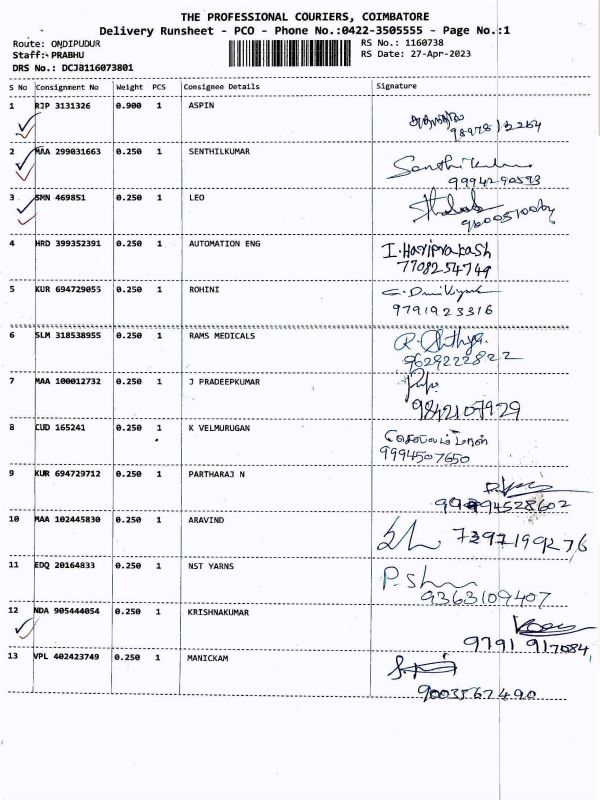 THE PROFESSIONAL COURIERS, COIMBATORE
Delivery Runsheet - PCO - Phone No.:0422-3505555 - Page No.:1
Route: ONDIPUDUR RS No.: 1160738
Staff: PRABHU RS Date: 27-Apr-2023
DRS No.: DCJ8116073801
S No Consignment No Weight PCS Consignee Details Signature
1 RJP 3131326 0.900 1 ASPIN
2 MAA 299031663 0.250 1 SENTHILKUMAR Senthilkumar
9994290593
3 SMN 469851 0.250 1 LEO
4 HRD 399352391 0.250 1 AUTOMATION ENG I. Hariprakash
7708254749
5 KUR 694729055 0.250 1 ROHINI
9791923316
6 SLM 318538955 0.250 1 RAMS MEDICALS R.
9629222822
7 MAA 100012732 0.250 1 J PRADEEPKUMAR
9842107929
8 CUD 165241 0.250 1 K VELMURUGAN
9994507650
9 KUR 694729712 0.250 1 PARTHARAJ N
10 MAA 102445830 0.250 1 ARAVIND 7397199276
11 EDQ 20164833 0.250 1 NST YARNS
9363109407
12 NDA 905444054 0.250 1 KRISHNAKUMAR
9791 917084
13 VPL 402423749 0.250 1 MANICKAM
9003567490